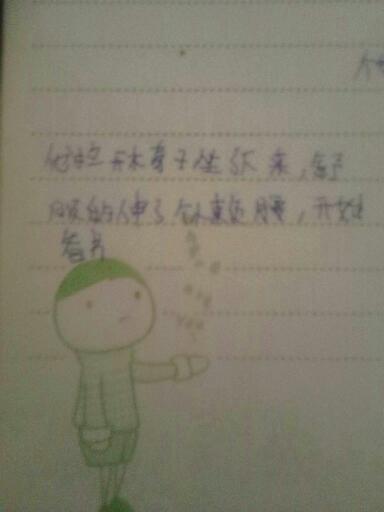 他拉开椅子坐下来,舒
服的伸了个懒腰,开始
看书